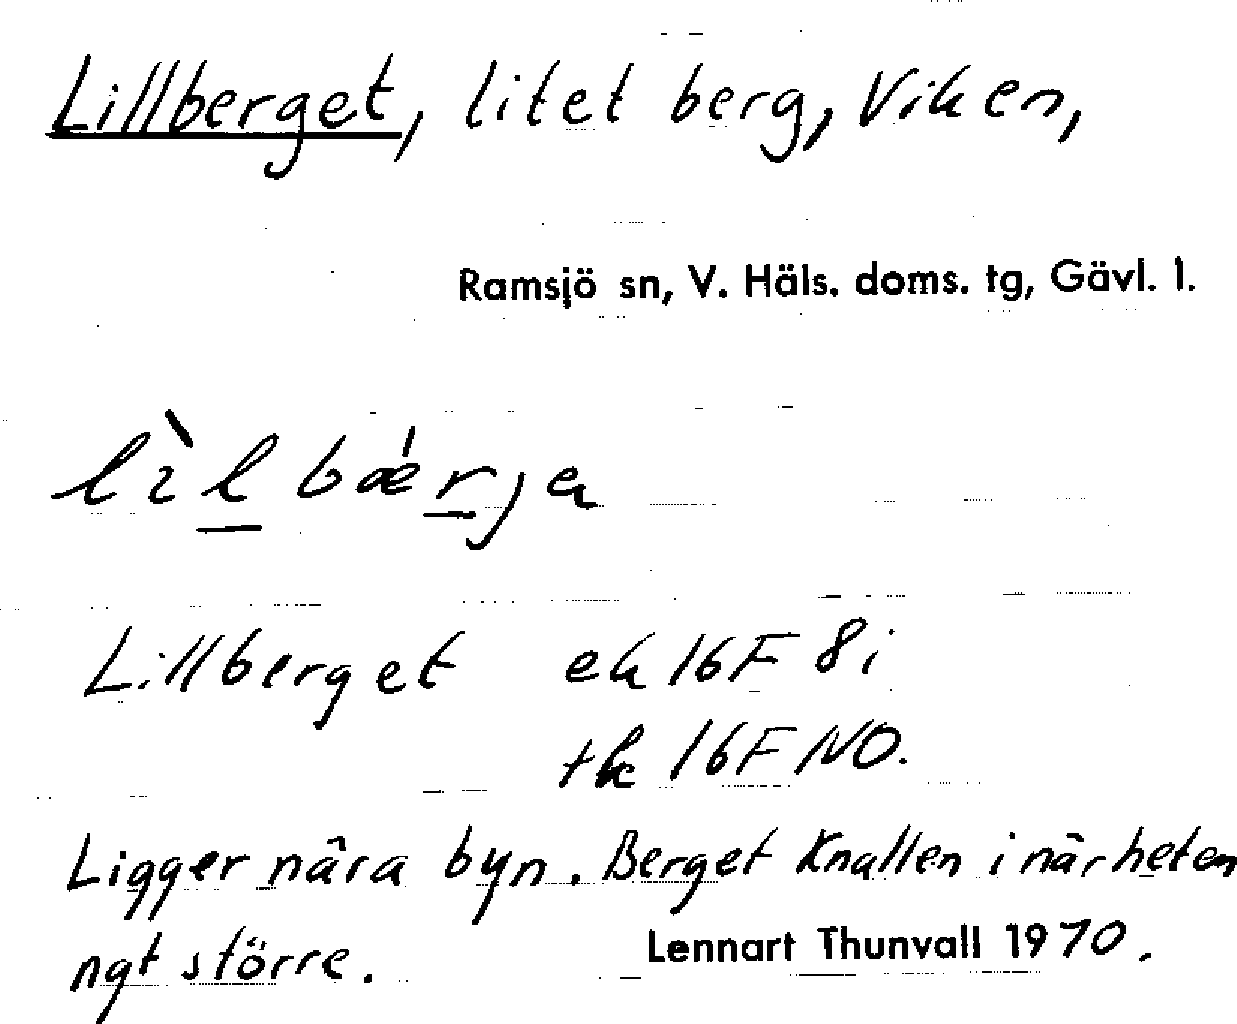 Lillberget, litet berg, Viken,
Ramsjö sn, V. Häls. doms. tg, Gävl. l.
lìlbǽrja
Lillberget ek 16F 8i
tk 16F NO.
Ligger nära byn. Berget Knallen i närheten
ngt större. Lennart Thunvall 1970.